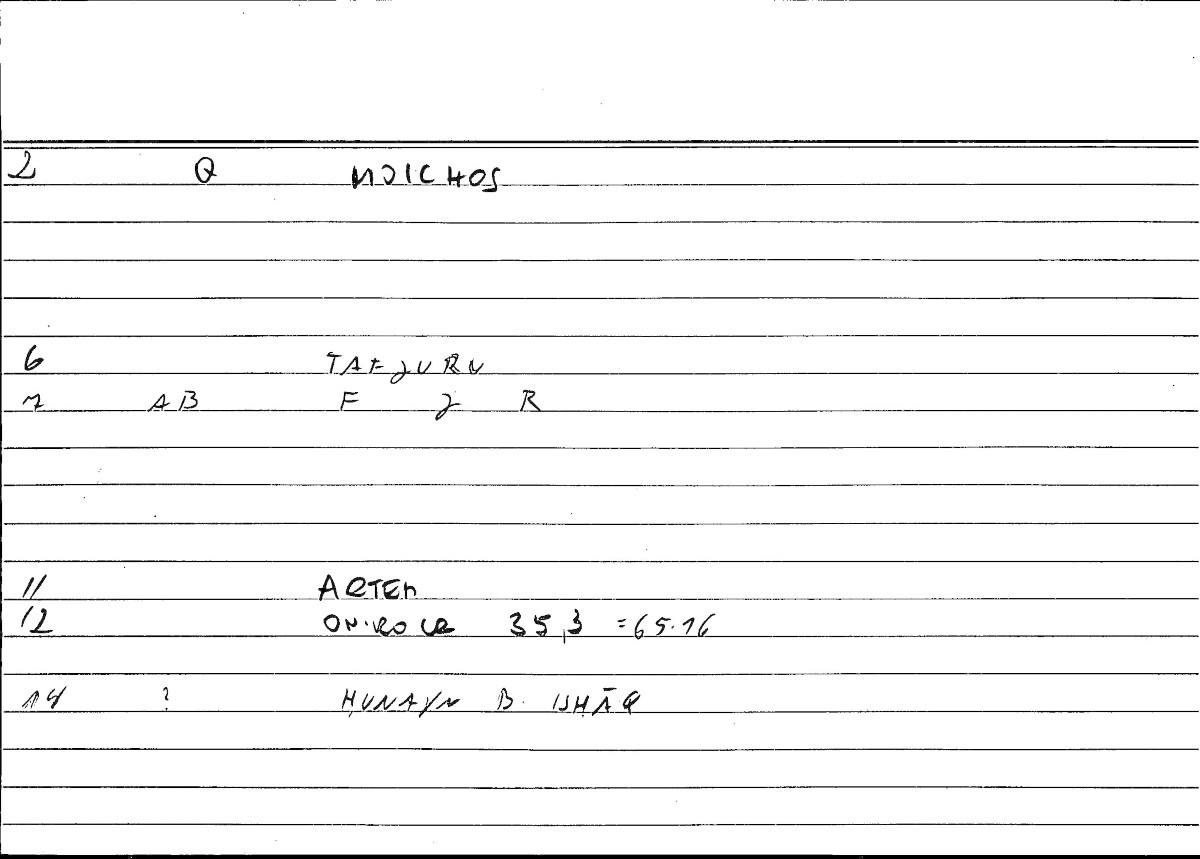 2 Q MOICHOS
6 TAFJURU
7 AB F J R
11 ARTEM
12 ONIROCR 35,3 =65.16
14 ? ḤUNAYN B. ISḤĀQ